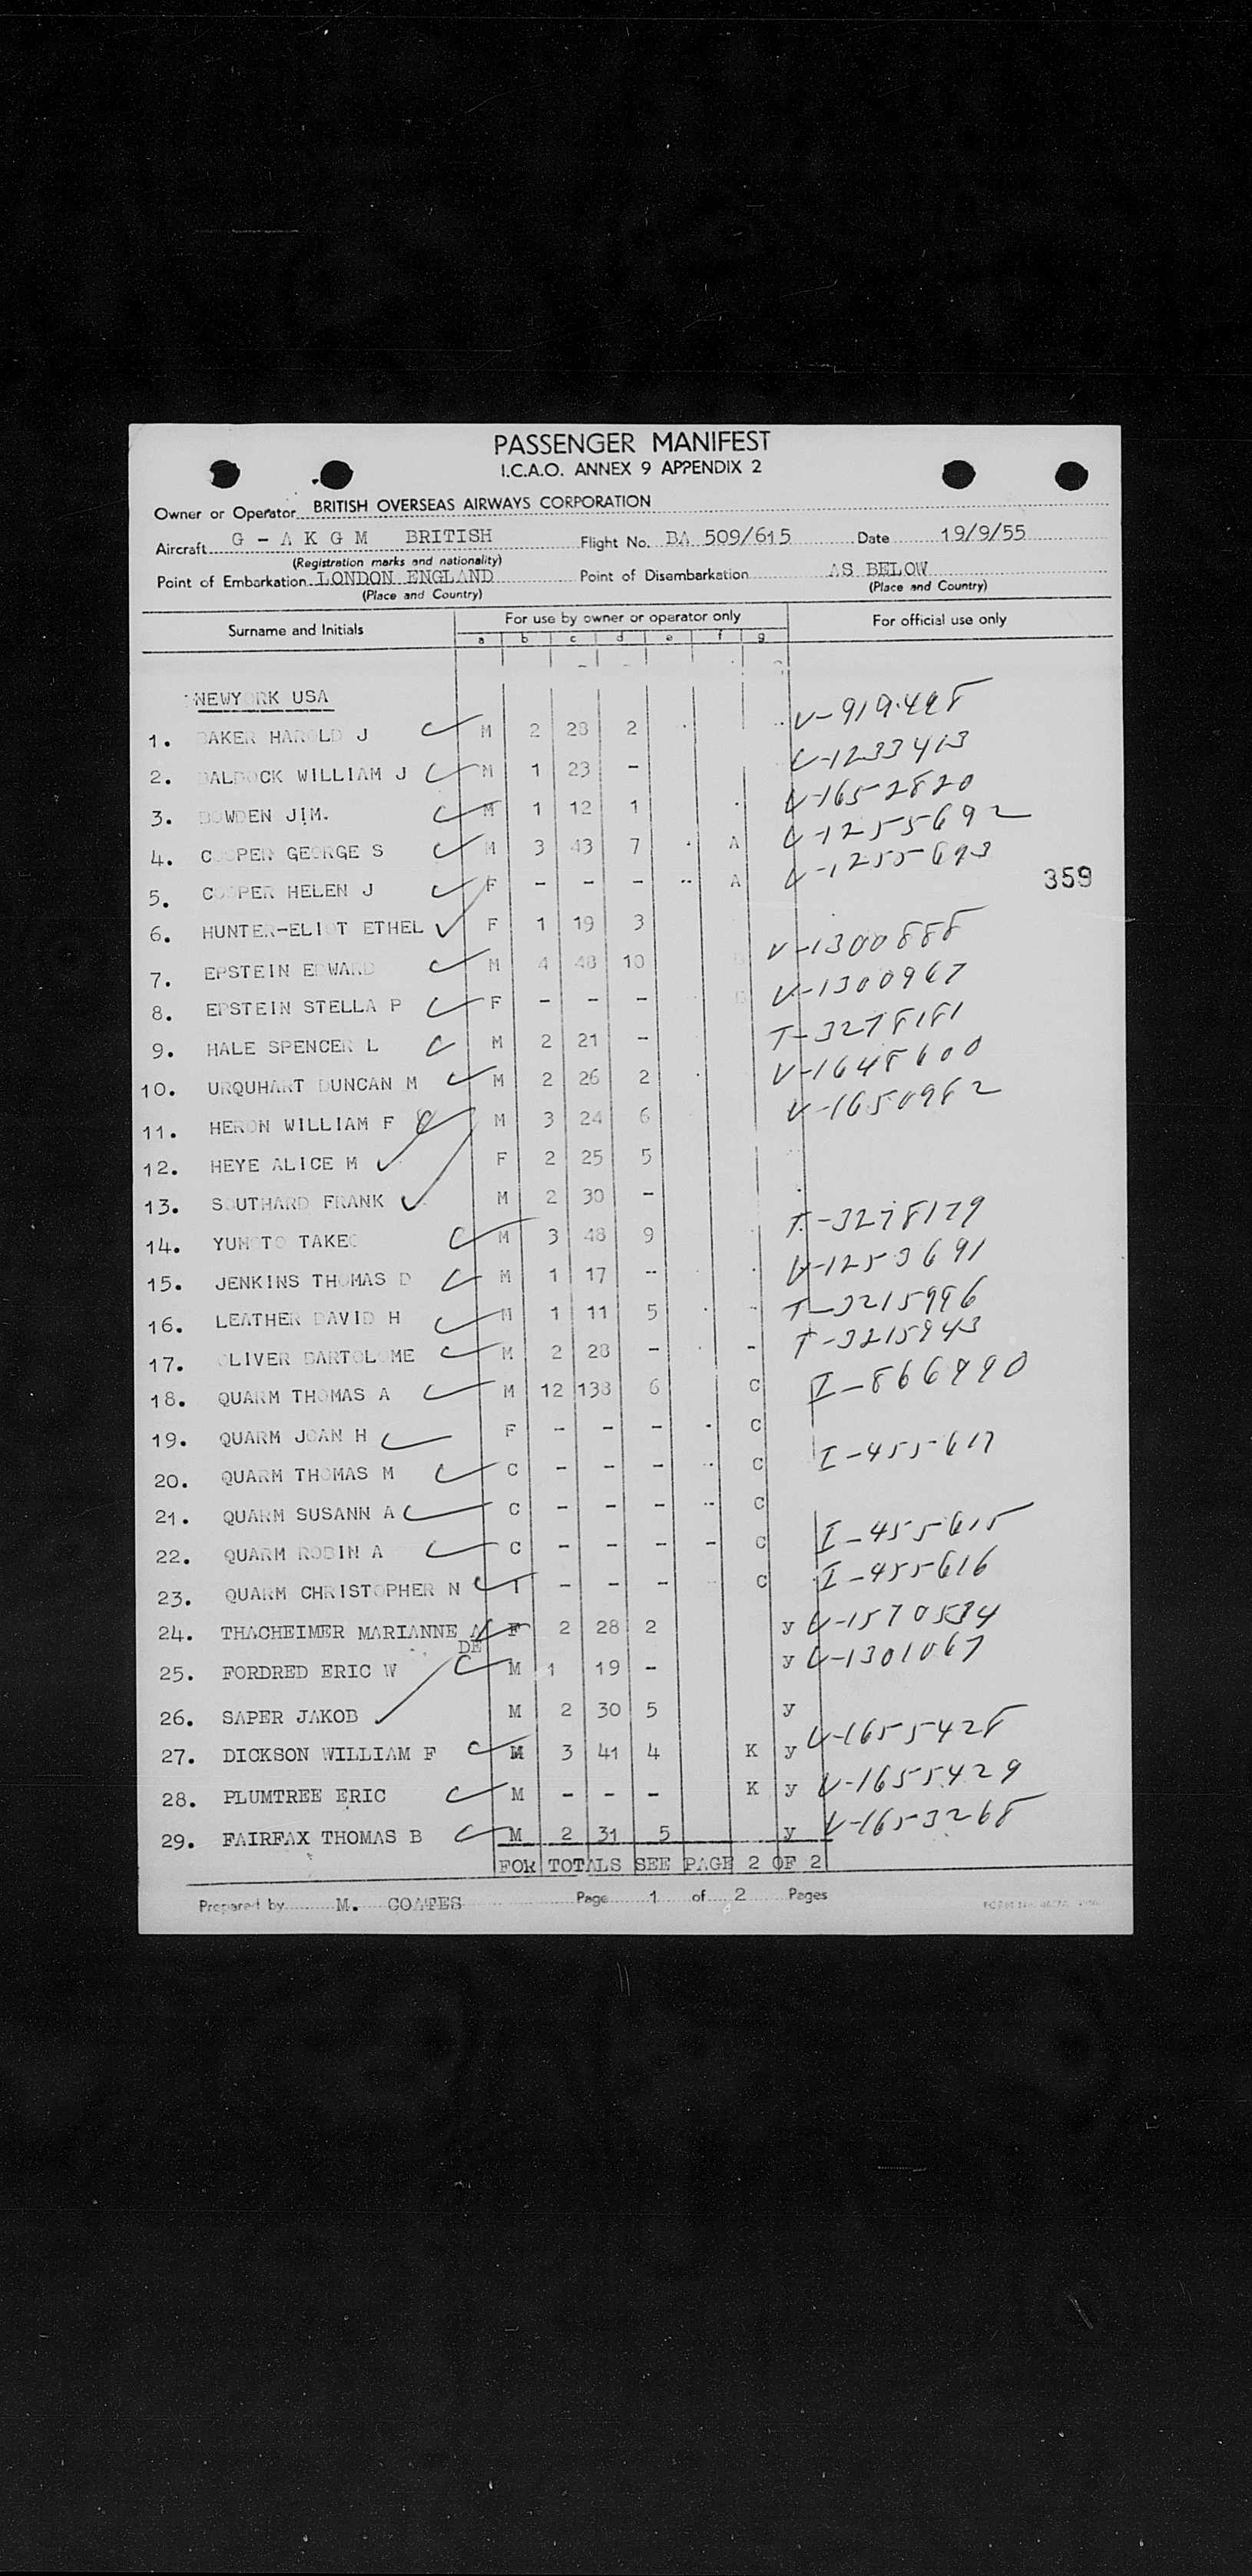 PASSENGER MANIFEST
I.C.A.O. ANNEX 9 APPENDIX 2
Owner or Operator BRITISH OVERSEAS AIRWAYS CORPORATION
Aircraft G - A K G M BRITISH Flight No. BA 509/615 Date 19/9/55
(Registration marks and nationality)
Point of Embarkation LONDON ENGLAND Point of Disembarkation AS BELOW
(Place and Country) (Place and Country)
Surname and Initials For use by owner or operator only For official use only
a b c d e f g
NEWYORK USA
1. BAKER HAROLD J M 2 28 2 V-919498
2. BALDOCK WILLIAM J M 1 23 - V-1233413
3. BOWDEN JIM. M 1 12 1 V-1652820
4. COOPER GEORGE S M 3 43 7 A V-1255692
5. COOPER HELEN J F - - - A V-1255693
359
6. HUNTER-ELIOT ETHEL F 1 19 3
7. EPSTEIN EDWARD M 4 48 10 V-1300888
8. EPSTEIN STELLA P F - - - V-1300967
9. HALE SPENCER L M 2 21 - T-3278181
10. URQUHART DUNCAN M M 2 26 2 V-1648600
11. HERON WILLIAM F M 3 24 6 V-1650982
12. HEYE ALICE M F 2 25 5
13. SOUTHARD FRANK M 2 30 -
14. YUMOTO TAKEO M 3 48 9 T-3278179
15. JENKINS THOMAS D M 1 17 - V-1253691
16. LEATHER DAVID H M 1 11 5 T-3215996
17. OLIVER BARTOLOME M 2 28 - - T-3215943
18. QUARM THOMAS A M 12 138 6 C I-866990
19. QUARM JOAN H F - - - C
20. QUARM THOMAS M C - - - C I-455617
21. QUARM SUSANN A C - - - C
22. QUARM ROBIN A C - - - - C I-455615
23. QUARM CHRISTOPHER N I - - - C I-455616
24. THACHEIMER MARIANNE A F 2 28 2 y V-1570534
DE
25. FORDRED ERIC W M 1 19 - y V-1301067
26. SAPER JAKOB M 2 30 5 y
27. DICKSON WILLIAM F M 3 41 4 K y V-1655428
28. PLUMTREE ERIC M - - - K y V-1655429
29. FAIRFAX THOMAS B M 2 31 5 y V-1653268
FOR TOTALS SEE PAGE 2 OF 2
Prepared by M. COATES Page 1 of 2 Pages